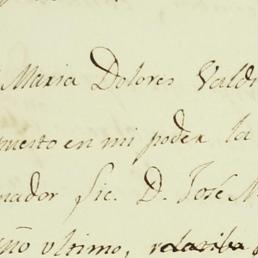 Maria Dolores Vald
puesto en mi poder la
nador lic. D. José M
ultimo, relativa